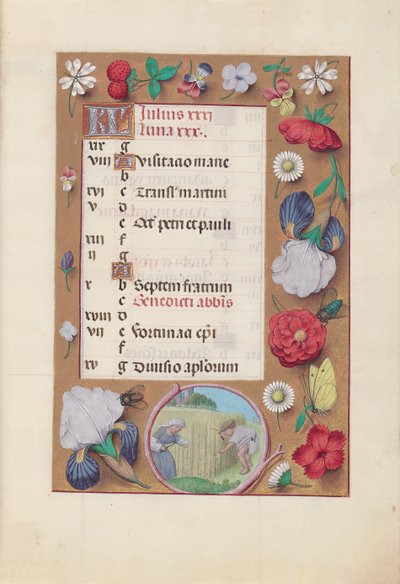 KL Julius xxxj
Luna xxx.
xix g
viii A Visitacio marie
b
xvi c Transl' martini
v d
e Oct' petri et pauli
xiii f
ii g
A
x b Septem fratrum
c Benedicti abb'is
xviii d
vii e fortunati ep'i
f
xv g Divisio ap'lorum